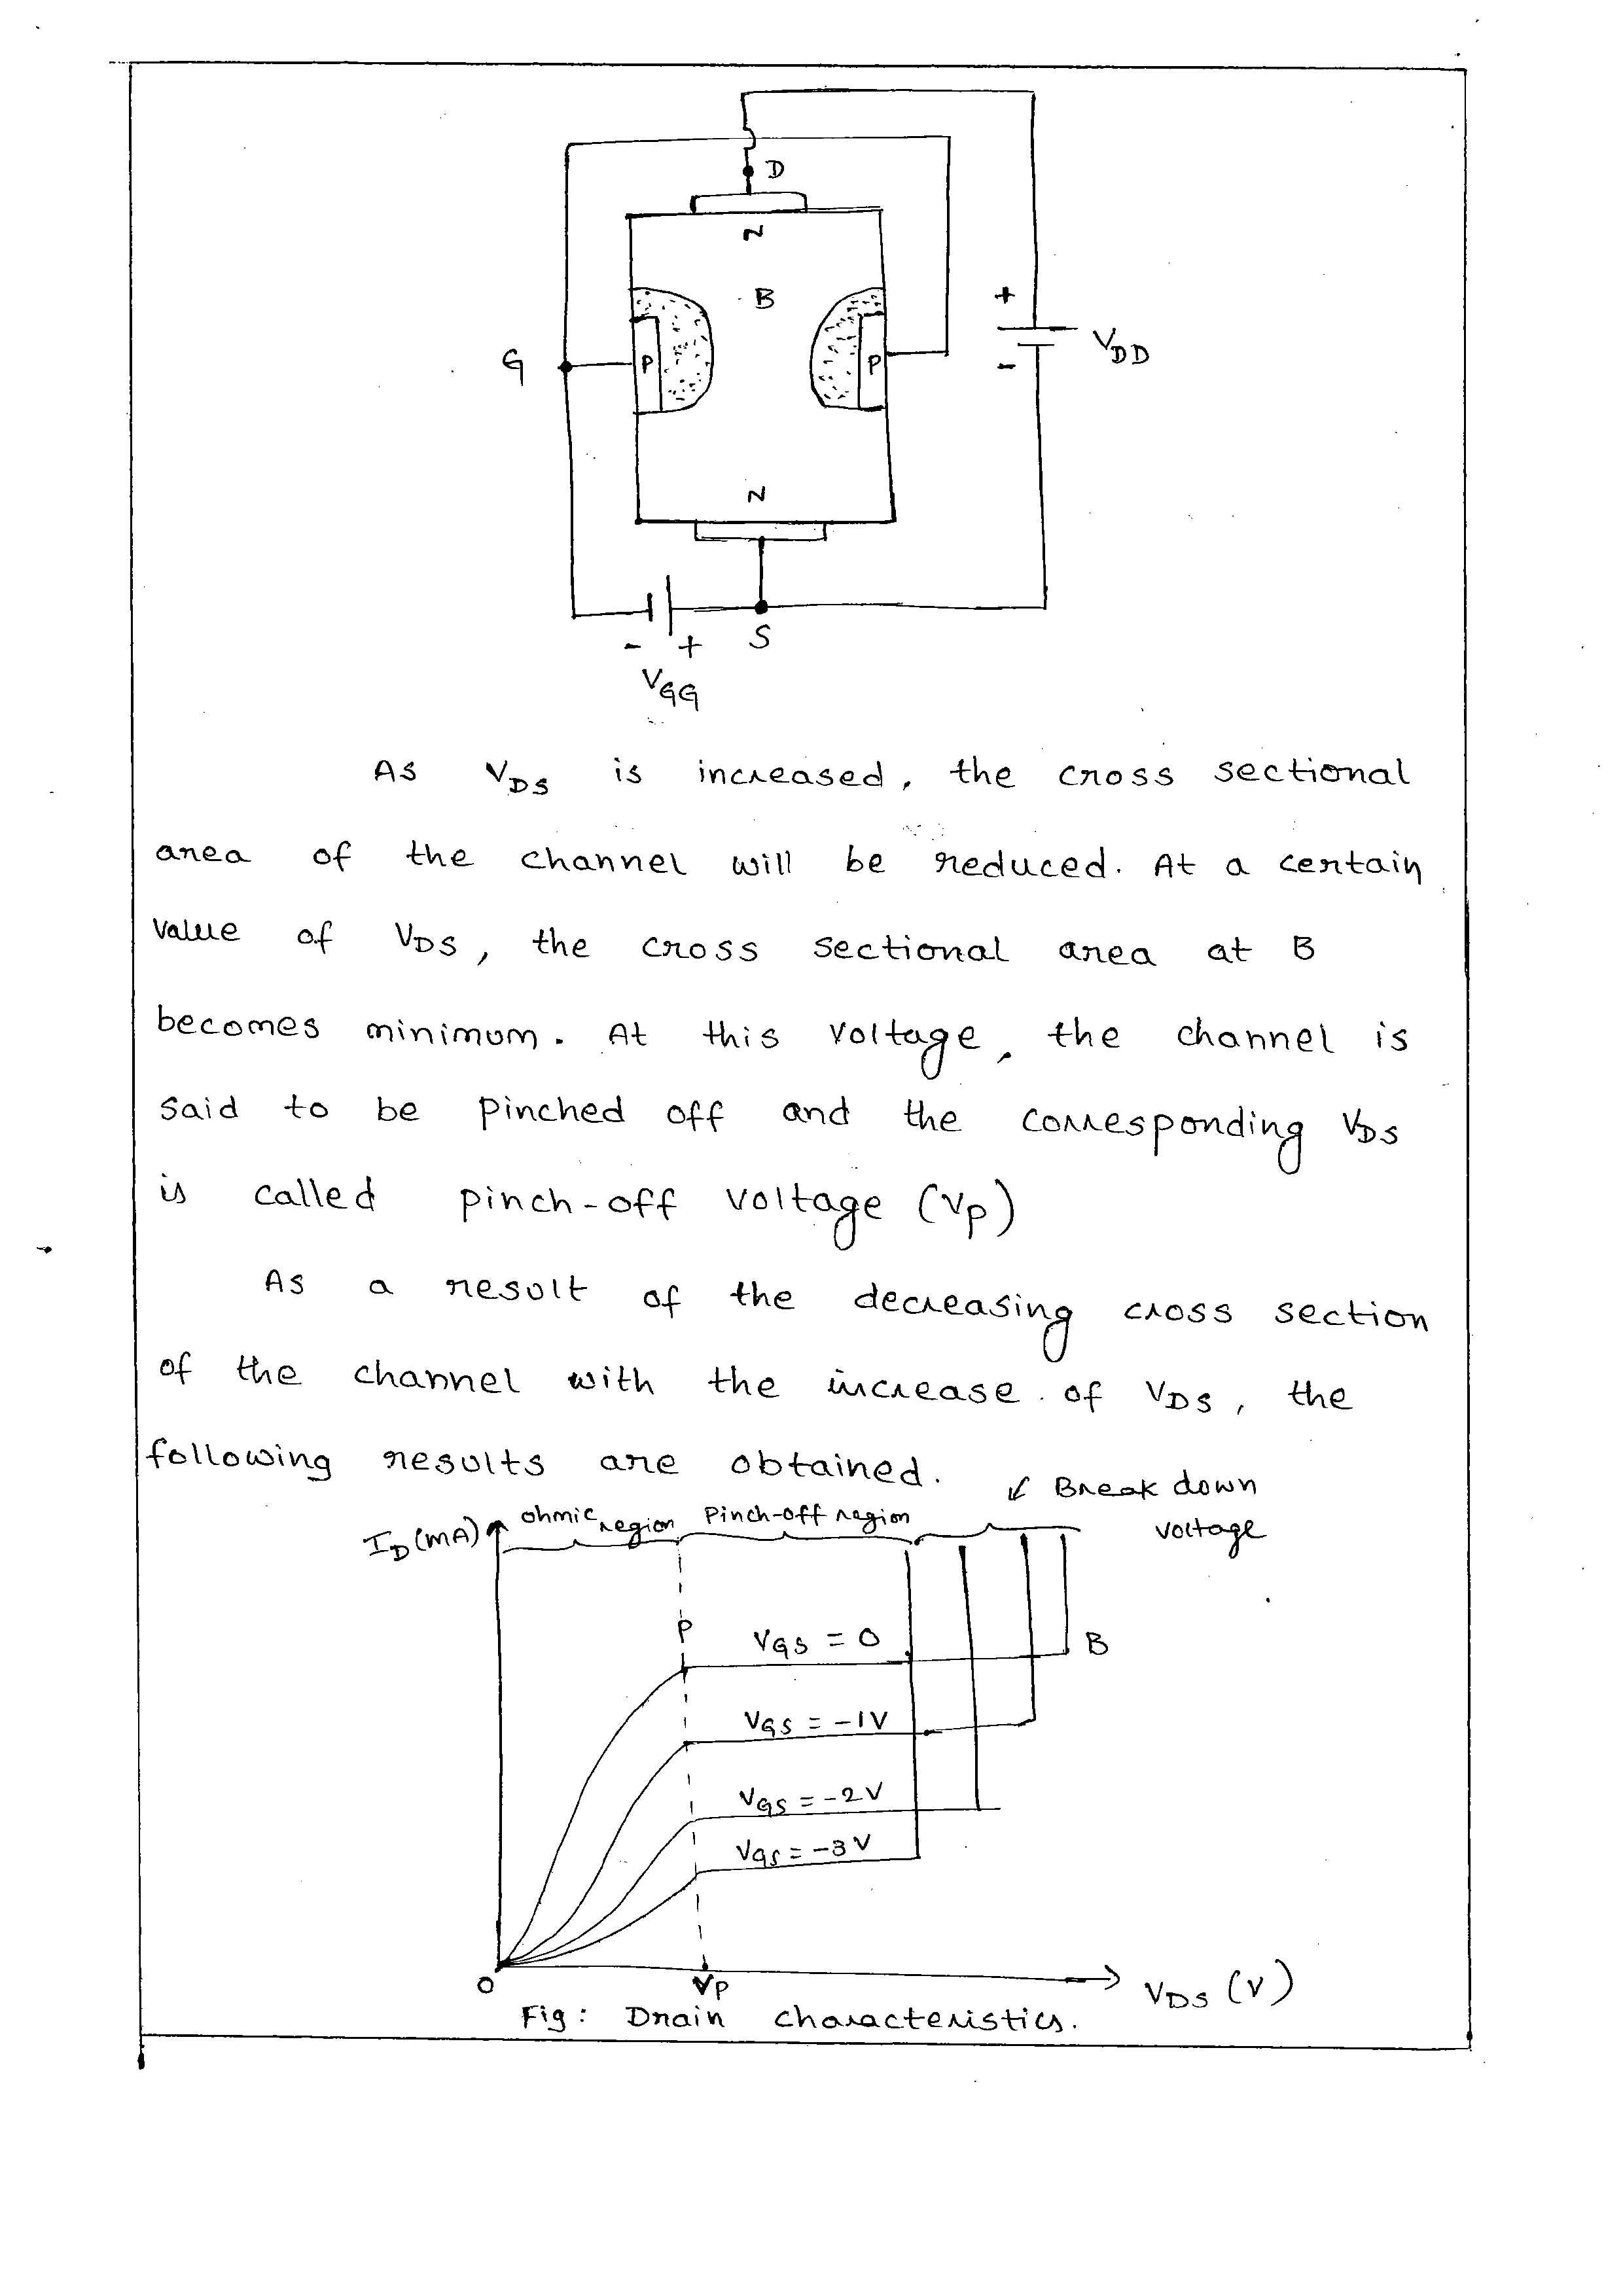 D
N
B
+
VDD
G
P
P
-
N
- + S
VGG
As VDS is increased, the cross sectional
area of the channel will be reduced. At a certain
value of VDS, the cross sectional area at B
becomes minimum. At this voltage, the channel is
said to be pinched off and the corresponding VDS
is called pinch-off voltage (Vp)
As a result of the decreasing cross section
of the channel with the increase of VDS, the
following results are obtained.
Break down
voltage
ID (mA) ohmic region Pinch-off region
P
VGS = 0
B
VGS = -1V
VGS = -2V
VGS = -3V
O
VP
VDS (V)
Fig: Drain characteristics.